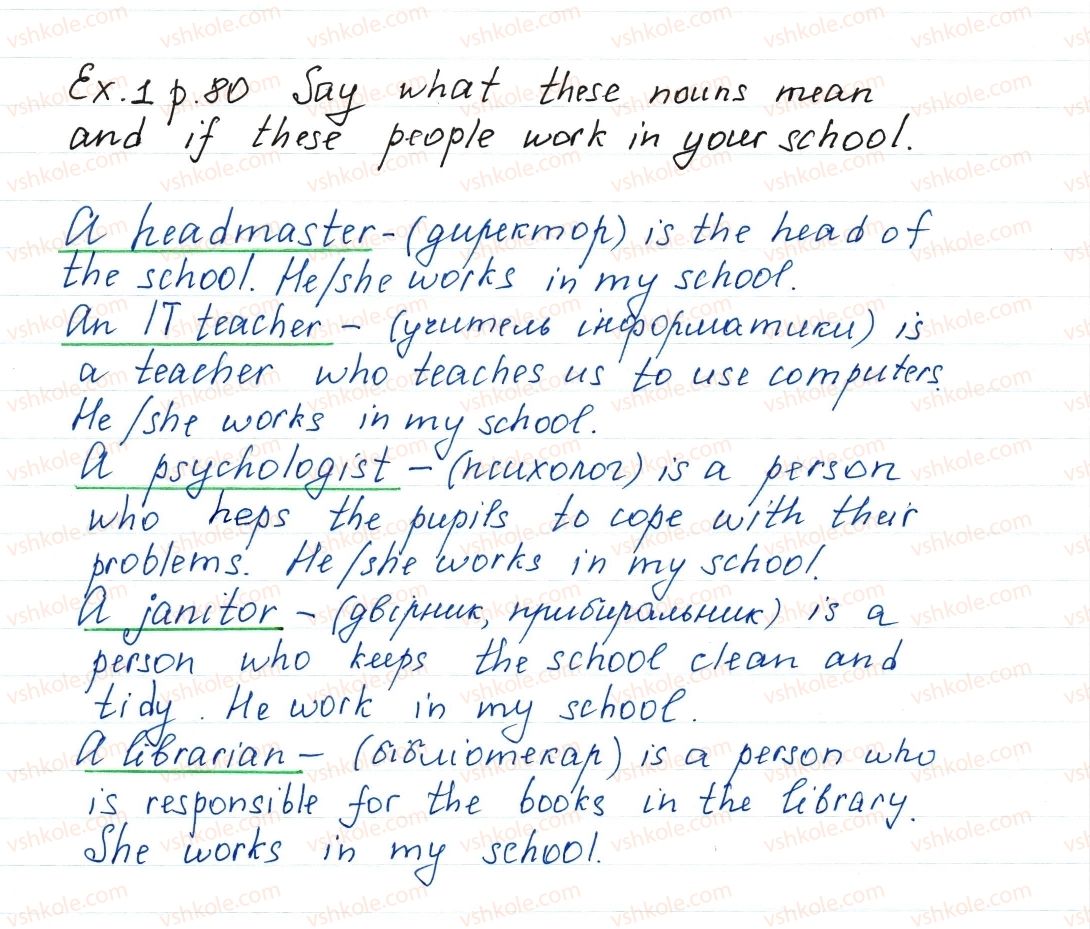 Ex.1 p.80 Say what these nouns mean
and if these people work in your school.
A headmaster - (директор) is the head of
the school. He/she works in my school.
An IT teacher - (учитель інформатики) is
a teacher who teaches us to use computers
He/she works in my school.
A psychologist - (психолог) is a person
who heps the pupils to cope with their
problems. He/she works in my school.
A janitor - (двірник, прибиральник) is a
person who keeps the school clean and
tidy. He work in my school.
A librarian - (бібліотекар) is a person who
is responsible for the books in the library.
She works in my school.
vshkole.com